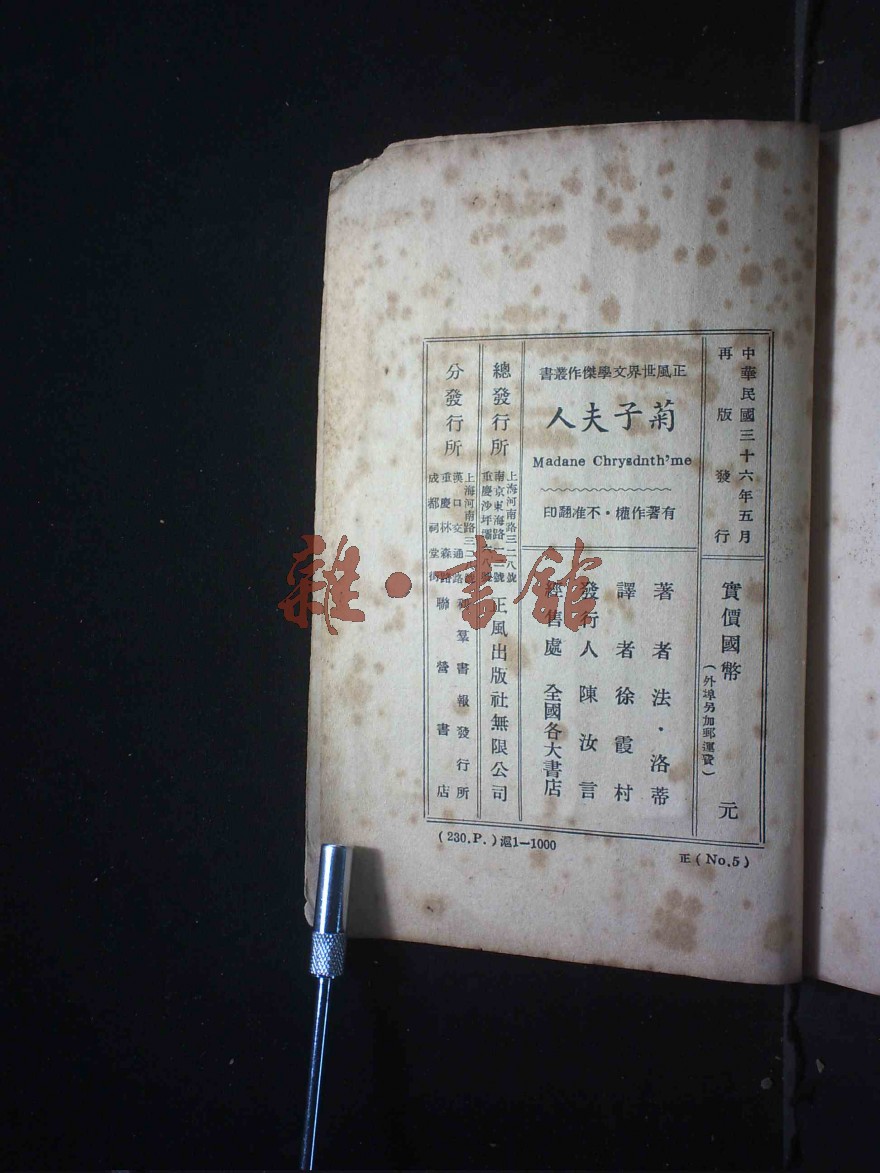 中華民國三十六年五月
再版發行
實價國幣 元
(外埠另加郵運費)
正風世界文學傑作叢書
菊子夫人
Madane Chrysdnth'me
有著作權·不准翻印
著者 法·洛蒂
譯者 徐霞村
發行人 陳汝言
經售處 全國各大書店
總發行所
上海河南路三二八號
南京東海路
重慶沙坪壩
正風出版社無限公司
分發行所
上海河南路三二
漢口交通路
重慶林森路
成都祠堂街
羣書報發行所
聯營書店
(230.P.)滬1—1000
正(No.5)
雜·書館